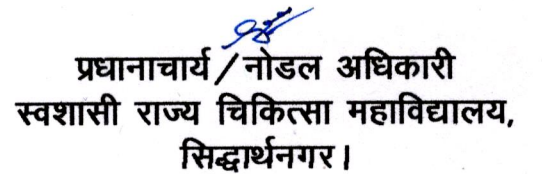 प्रधानाचार्य/नोडल अधिकारी
स्वशासी राज्य चिकित्सा महाविद्यालय,
सिद्धार्थनगर।